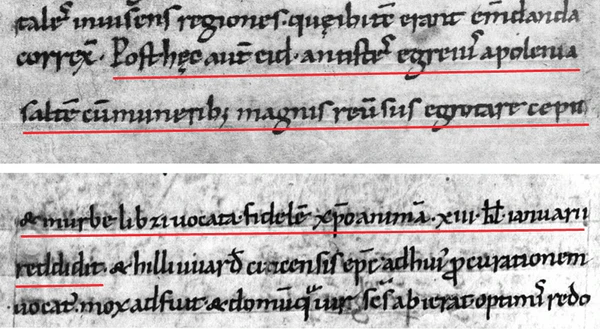 inuisens regiones. quę ibi tē erant em̄danda
correx̄. Post hęc aut̄ eid. antistes egrēus a polenia
saltē cū muneribꝫ magnis reūsus egrotare cepit
& in urbe libzi uocata. fidelē xp̄o animā. xiii. kl̄ ianuarii
reddidit. & hilliuuard̄ cicensis ep̄c ad huiꝰ ꝓcurationem
uocatꝰ. mox adfuit & domū qua uir sc̄s abierat optimū redo